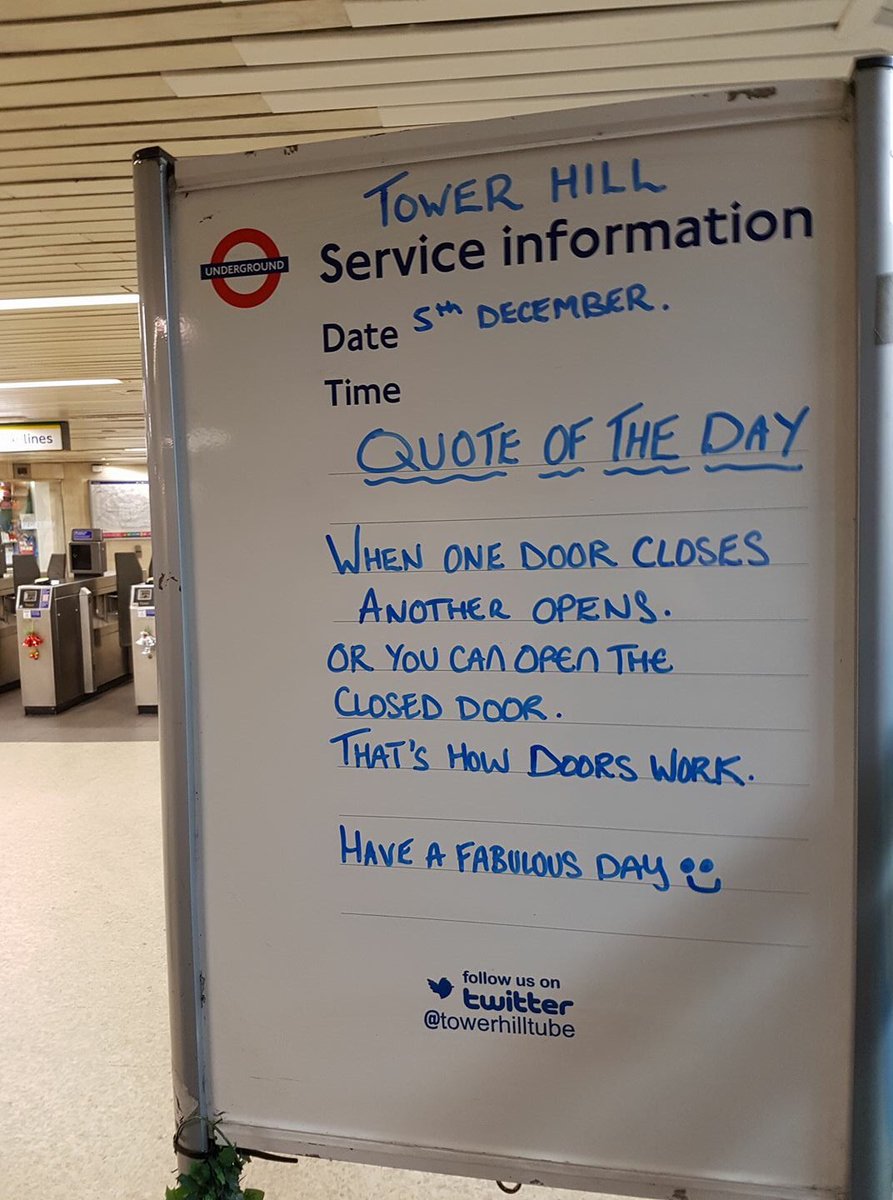 TOWER HILL
UNDERGROUND
Service information
Date 5th DECEMBER.
Time
lines
QUOTE OF THE DAY
WHEN ONE DOOR CLOSES
ANOTHER OPENS.
OR YOU CAN OPEN THE
CLOSED DOOR.
THAT'S HOW DOORS WORK.
HAVE A FABULOUS DAY
follow us on
twitter
@towerhilltube